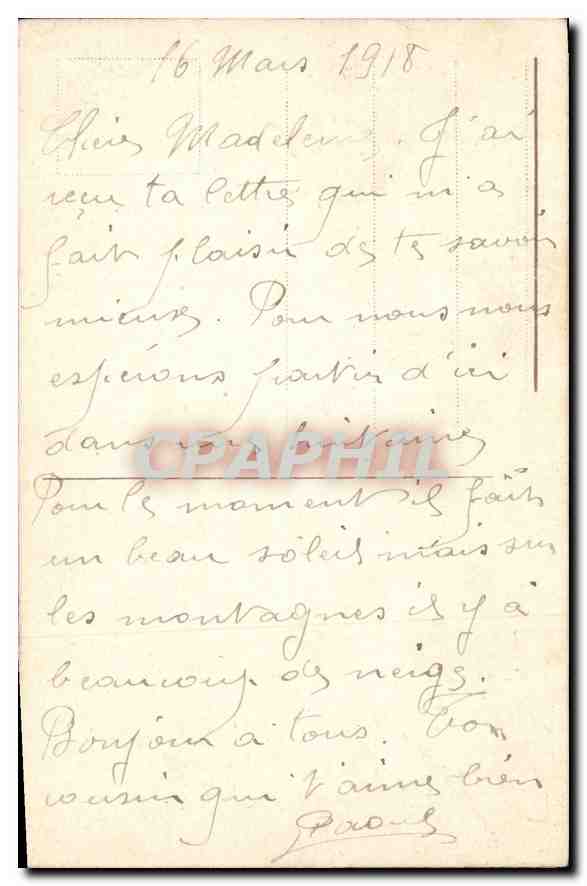 16 Mars 1918
Chère Madeleine. J'ai
reçu ta lettre qui m'a
fait plaisir de te savoir
mieux. Pour nous nous
espérons partir d'ici
dans une huitaine
CPAPHIL
Pour le moment il fait
un beau soleil mais sur
les montagnes il y à
beaucoup de neige.
Bonjour à tous. Ton
cousin qui t'aime bien
Raoul